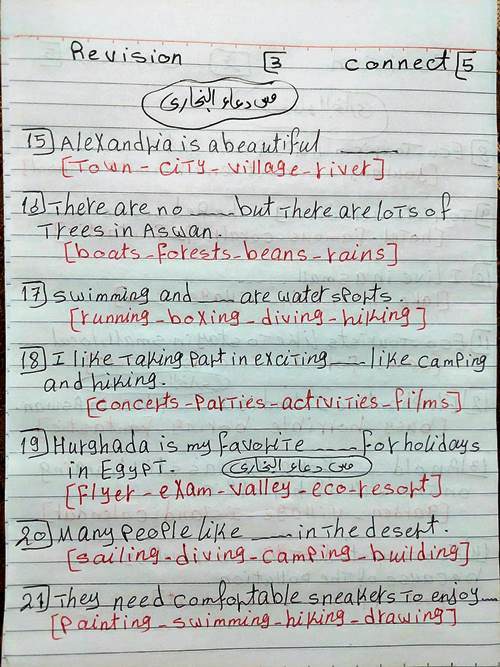 Revision [3 connect [5
مس دعاء البخارى
15] Alexandria is a beautiful ......
[Town - city - village - river]
16] There are no ...... but There are lots of
Trees in Aswan.
[boats - forests - beans - rains]
17] swimming and ...... are water sports.
[running - boxing - diving - hiking]
18] I like Taking part in exciting ...... like camping
and hiking.
[concerts - parties - activities - films]
19] Hurghada is my favorite ...... for holidays
in Egypt. مس دعاء البخارى
[flyer - exam - valley - eco-resort]
20] Many people like ...... in the desert.
[sailing - diving - camping - building]
21] They need comfortable sneakers To enjoy ......
[painting - swimming - hiking - drawing]